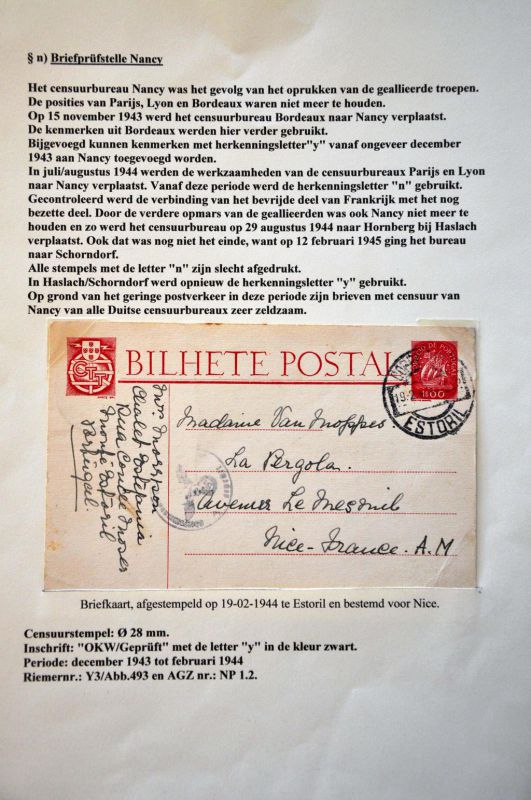 § n) Briefprüfstelle Nancy
Het censuurbureau Nancy was het gevolg van het oprukken van de geallieerde troepen.
De posities van Parijs, Lyon en Bordeaux waren niet meer te houden.
Op 15 november 1943 werd het censuurbureau Bordeaux naar Nancy verplaatst.
De kenmerken uit Bordeaux werden hier verder gebruikt.
Bijgevoegd kunnen kenmerken met herkenningsletter"y" vanaf ongeveer december
1943 aan Nancy toegevoegd worden.
In juli/augustus 1944 werden de werkzaamheden van de censuurbureaux Parijs en Lyon
naar Nancy verplaatst. Vanaf deze periode werd de herkenningsletter "n" gebruikt.
Gecontroleerd werd de verbinding van het bevrijde deel van Frankrijk met het nog
bezette deel. Door de verdere opmars van de geallieerden was ook Nancy niet meer te
houden en zo werd het censuurbureau op 29 augustus 1944 naar Hornberg bij Haslach
verplaatst. Ook dat was nog niet het einde, want op 12 februari 1945 ging het bureau
naar Schorndorf.
Alle stempels met de letter "n" zijn slecht afgedrukt.
In Haslach/Schorndorf werd opnieuw de herkenningsletter "y" gebruikt.
Op grond van het geringe postverkeer in deze periode zijn brieven met censuur van
Nancy van alle Duitse censuurbureaux zeer zeldzaam.
CTT
BILHETE POSTAL
1$00
ESTORIL
Madame Van Moppes
La Pergola.
avenue Le Mesnil
Nice-France. A.M
Chalet
Rua Conde Moser
Monte Estoril
Portugal
Briefkaart, afgestempeld op 19-02-1944 te Estoril en bestemd voor Nice.
Censuurstempel: Ø 28 mm.
Inschrift: "OKW/Geprüft" met de letter "y" in de kleur zwart.
Periode: december 1943 tot februari 1944
Riemernr.: Y3/Abb.493 en AGZ nr.: NP 1.2.